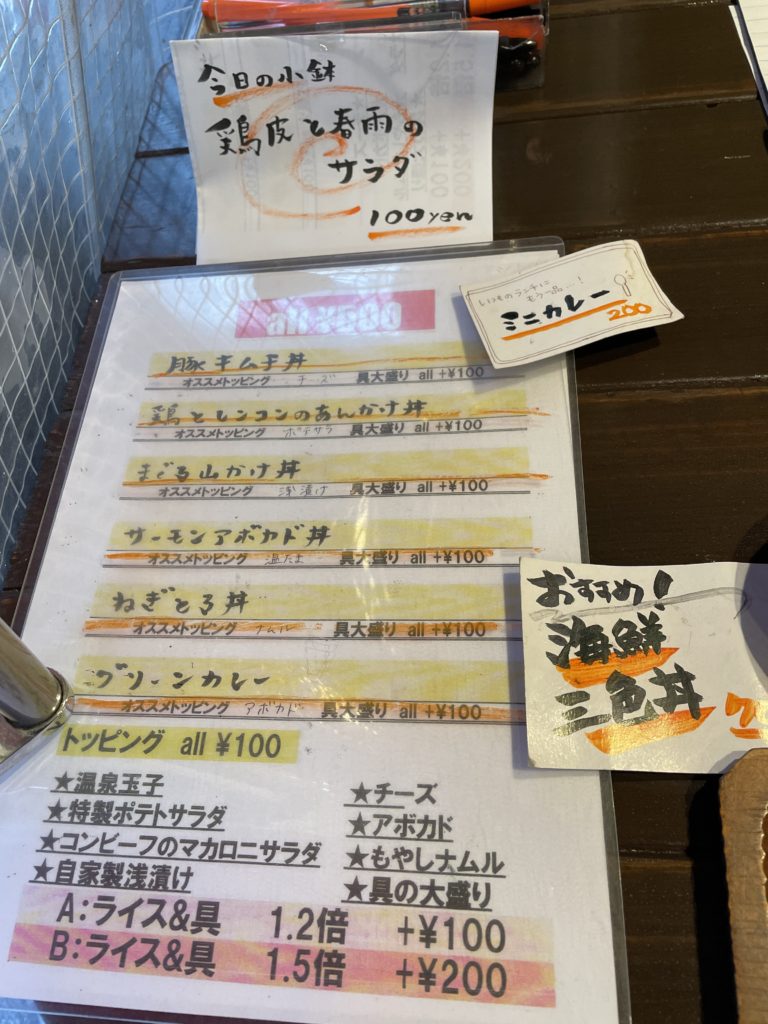 今日の小鉢
鶏皮と春雨の
サラダ
100yen
いつものランチに
もう一品…!
ミニカレー
200
all ¥200
豚キムチ丼
オススメトッピング チーズ 具大盛り all +¥100
鶏とレンコンのあんかけ丼
オススメトッピング ポテサラ 具大盛り all +¥100
まぐろ山かけ丼
オススメトッピング 浅漬け 具大盛り all +¥100
サーモンアボカド丼
オススメトッピング 温たま 具大盛り all +¥100
ねぎとろ丼
オススメトッピング ナムル 具大盛り all +¥100
グリーンカレー
オススメトッピング アボカド 具大盛り all +¥100
おすすめ!
海鮮
三色丼
トッピング all ¥100
★温泉玉子
★特製ポテトサラダ
★コンビーフのマカロニサラダ
★自家製浅漬け
★チーズ
★アボカド
★もやし大ムル
★具の大盛り
A:ライス&具 1.2倍 +¥100
B:ライス&具 1.5倍 +¥200